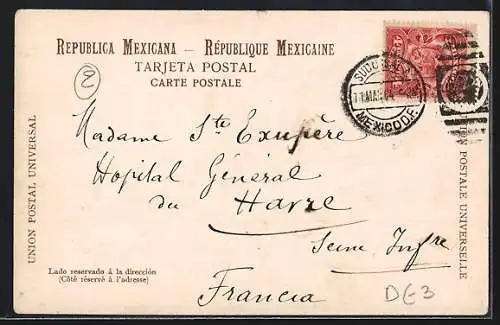 REPUBLICA MEXICANA — RÉPUBLIQUE MEXICAINE
TARJETA POSTAL
CARTE POSTALE
2
SUCURSAL
MEXICO D.F.
Madame Ste Exupère
Hopital Général
du Havre
Seine Infre
Francia
UNION POSTAL UNIVERSAL
UNION POSTALE UNIVERSELLE
Lado reservado á la dirección
(Côté réservé à l'adresse)
DG-3